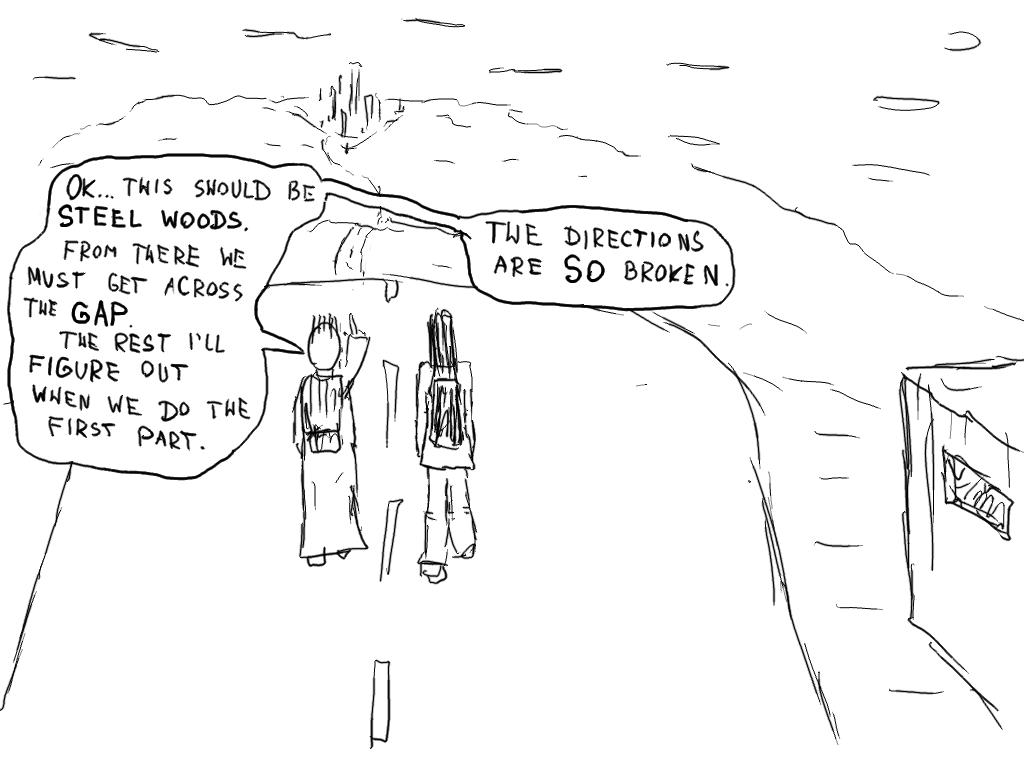 OK... THIS SHOULD BE
STEEL WOODS.
FROM THERE WE
MUST GET ACROSS
THE GAP.
THE REST I'LL
FIGURE OUT
WHEN WE DO THE
FIRST PART.
THE DIRECTIONS
ARE SO BROKEN.